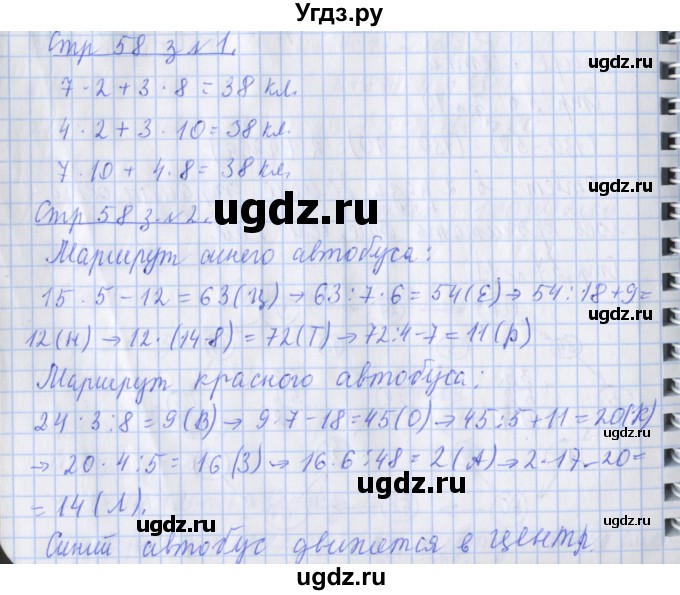 Угдз.ру
Стр 58 з №1.
ugdz.ru ugdz.ru
7 · 2 + 3 · 8 = 38 кл.
4 · 2 + 3 · 10 = 38 кл.
7 · 10 + 4 · 8 = 38 кл.
ugdz.ru ugdz.ru
Стр 58 з. №2.
ugdz.ru
Маршрут синего автобуса:
15 · 5 - 12 = 63 (Ц) → 63 : 7 · 6 = 54 (Е) → 54 : 18 + 9 =
ugdz.ru ugdz.ru
12 (Н) → 12 · (14-8) = 72 (Т) → 72:4-7 = 11 (Р)
Маршрут красного автобуса:
ugdz.ru ugdz.ru
24 · 3 : 8 = 9 (В) → 9 · 7 - 18 = 45 (О) → 45 : 5 + 11 = 20 (К)
→ 20 · 4 : 5 = 16 (З) → 16 · 6 : 48 = 2 (А) → 2 · 17 - 20 =
= 14 (Л).
ugdz.ru ugdz.ru
Синий автобус движется в центр.
ugdz.ru